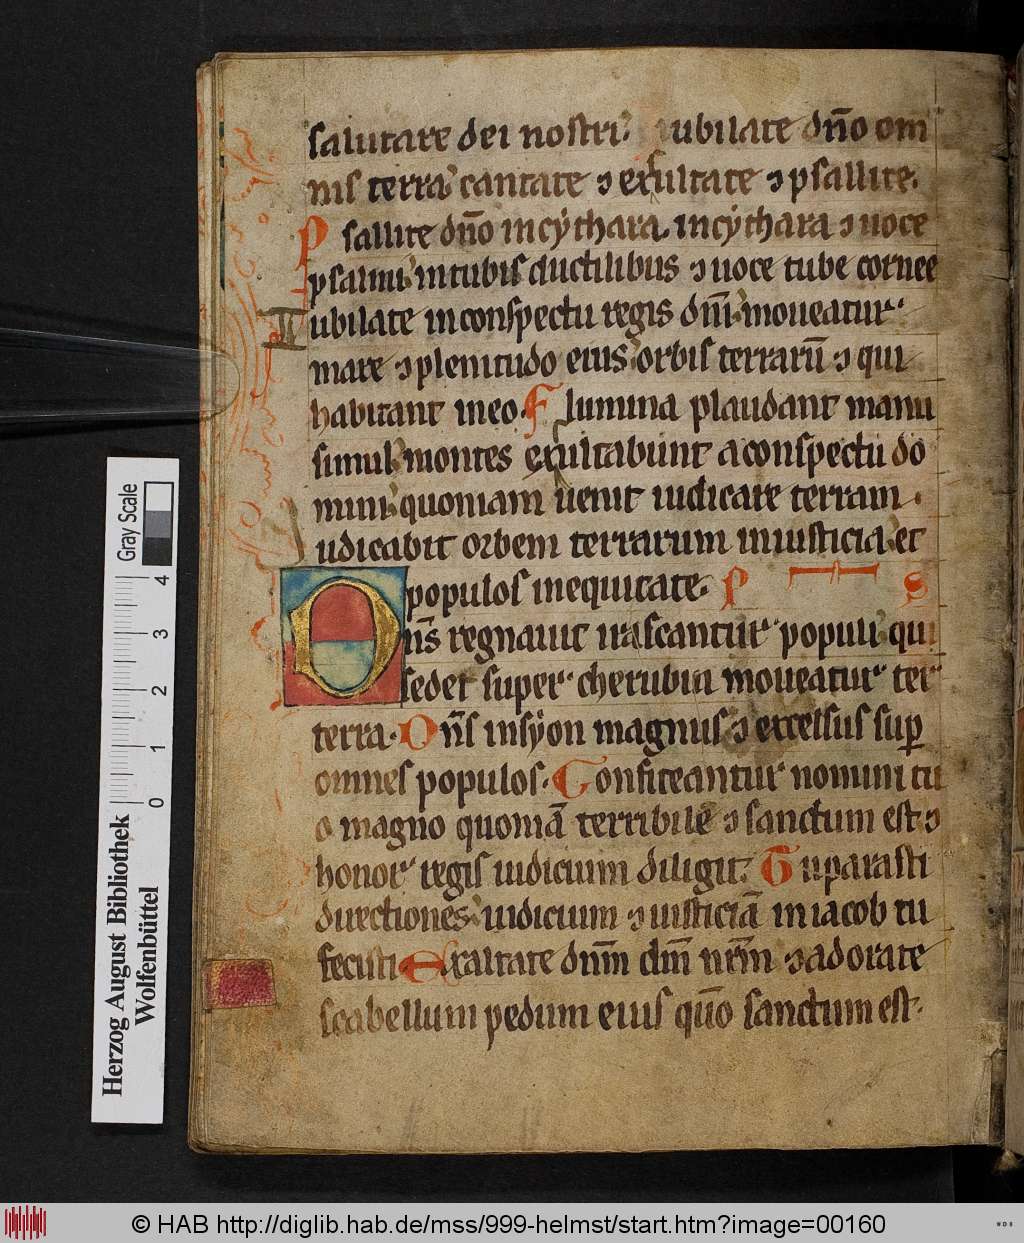 salutare dei nostri. Iubilate dn̄o om
nis terra cantate ⁊ exultate ⁊ psallite.
Psallite dn̄o in cythara. in cythara ⁊ uoce
psalmi in tubis ductilibus ⁊ uoce tube cornee
Iubilate in conspectu regis dn̄i moueatur
mare ⁊ plenitudo eius orbis terrarū ⁊ qui
habitant in eo. Flumina plaudant manu
simul montes exultabunt a conspectu do
mini quoniam uenit iudicare terram.
Iudicabit orbem terrarum in iusticia et
populos in equitate. P S
Dn̄s regnauit irascantur populi qui
sedet super cherubin moueatur ter
terra. Dn̄s in syon magnus ⁊ excelsus suꝑ
omnes populos. Confiteantur nomini tu
o magno quoniā terribile ⁊ sanctum est ⁊
honor regis iudicium diligit. Tu parasti
directiones iudicium ⁊ iusticiā in iacob tu
fecisti Exaltate dn̄m dm̄ nr̄m ⁊ adorate
scabellum pedum eius qūo sanctum est.
Gray Scale
4 3 2 1 0
Herzog August Bibliothek
Wolfenbüttel
© HAB http://diglib.hab.de/mss/999-helmst/start.htm?image=00160
WDB